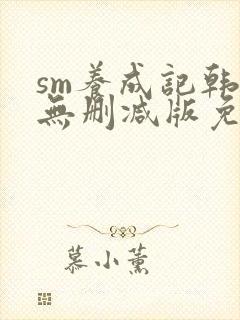 sm养成記韩
無删减版免
慕小薰